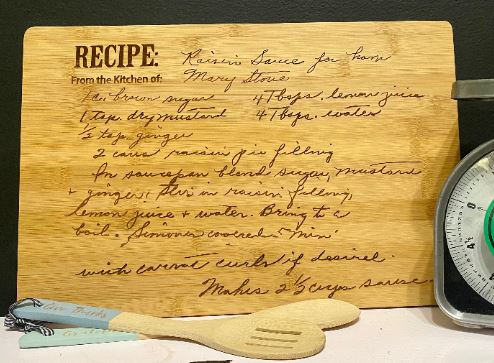 RECIPE: Raisin Sauce for ham
From the Kitchen of: Mary Stove
1 c. brown sugar 4 Tbsps. lemon juice
1 tsp. dry mustard 4 Tbsps. water
½ tsp. ginger
2 cans raisin pie filling
In saucepan blend sugar, mustard
+ ginger. Stir in raisin filling,
lemon juice + water. Bring to a
boil. Simmer covered 5 min.
with carrot curls if desired.
Makes 2 ½ cups sauce.